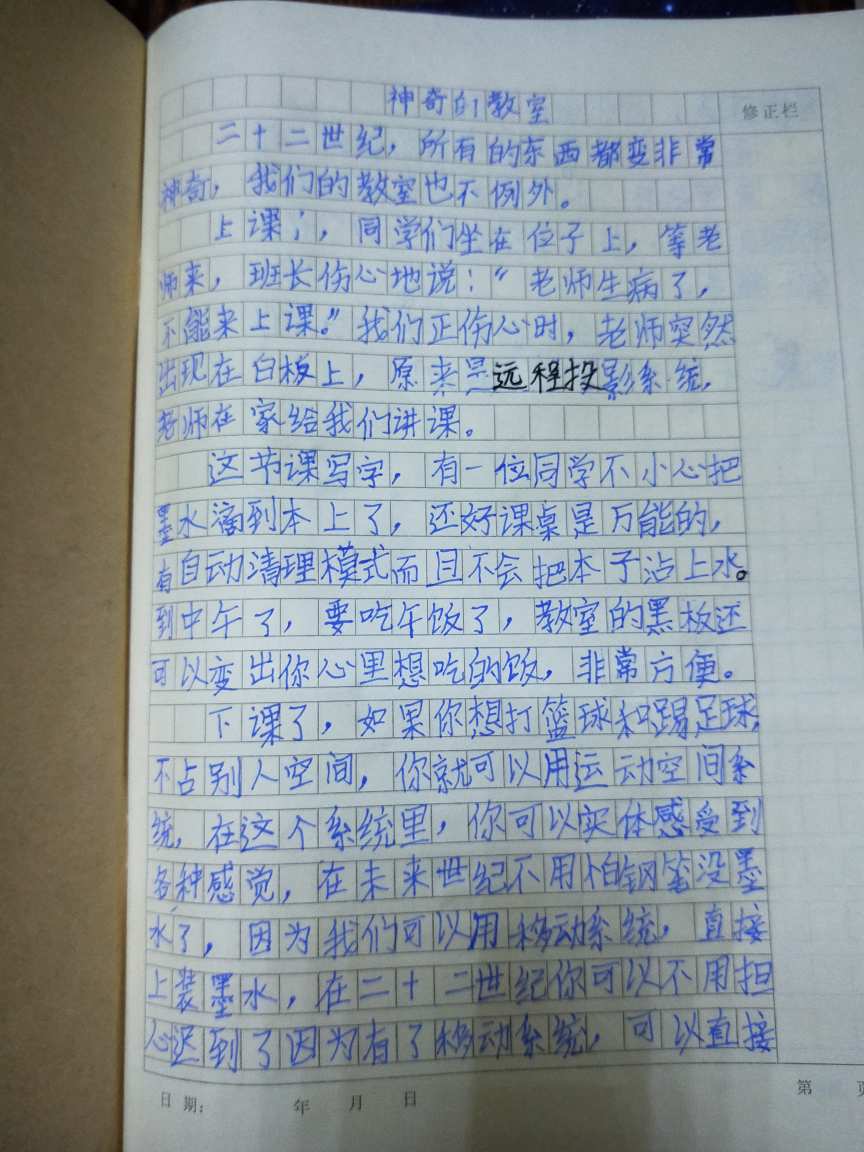 神奇的教室
修正栏
二十二世纪，所有的东西都变非常
神奇，我们的教室也不例外。
上课了，同学们坐在位子上，等老
师来，班长伤心地说：“老师生病了，
不能来上课。”我们正伤心时，老师突然
出现在白板上，原来是远程投影系统，
老师在家给我们讲课。
这节课写字，有一位同学不小心把
墨水滴到本上了，还好课桌是万能的，
有自动清理模式而且不会把本子沾上水。
到中午了，要吃午饭了，教室的黑板还
可以变出你心里想吃的饭，非常方便。
下课了，如果你想打篮球和踢足球，
不占别人空间，你就可以用运动空间系
统，在这个系统里，你可以实体感受到
各种感觉，在未来世纪不用怕钢笔没墨
水了，因为我们可以用移动系统，直接
上装墨水，在二十二世纪你可以不用担
心迟到了因为有了移动系统，可以直接
日期： 年 月 日
第 页